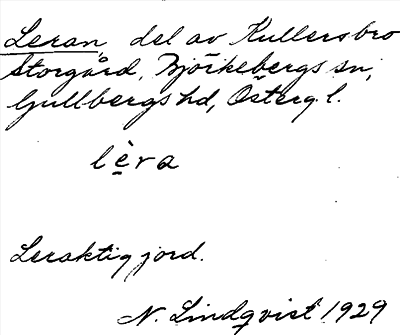 Leran, del av Kullersbro
Storgård, Björkebergs sn,
Gullbergs hd, Österg. l.
lèra
Leraktig jord.
N. Lindqvist 1929